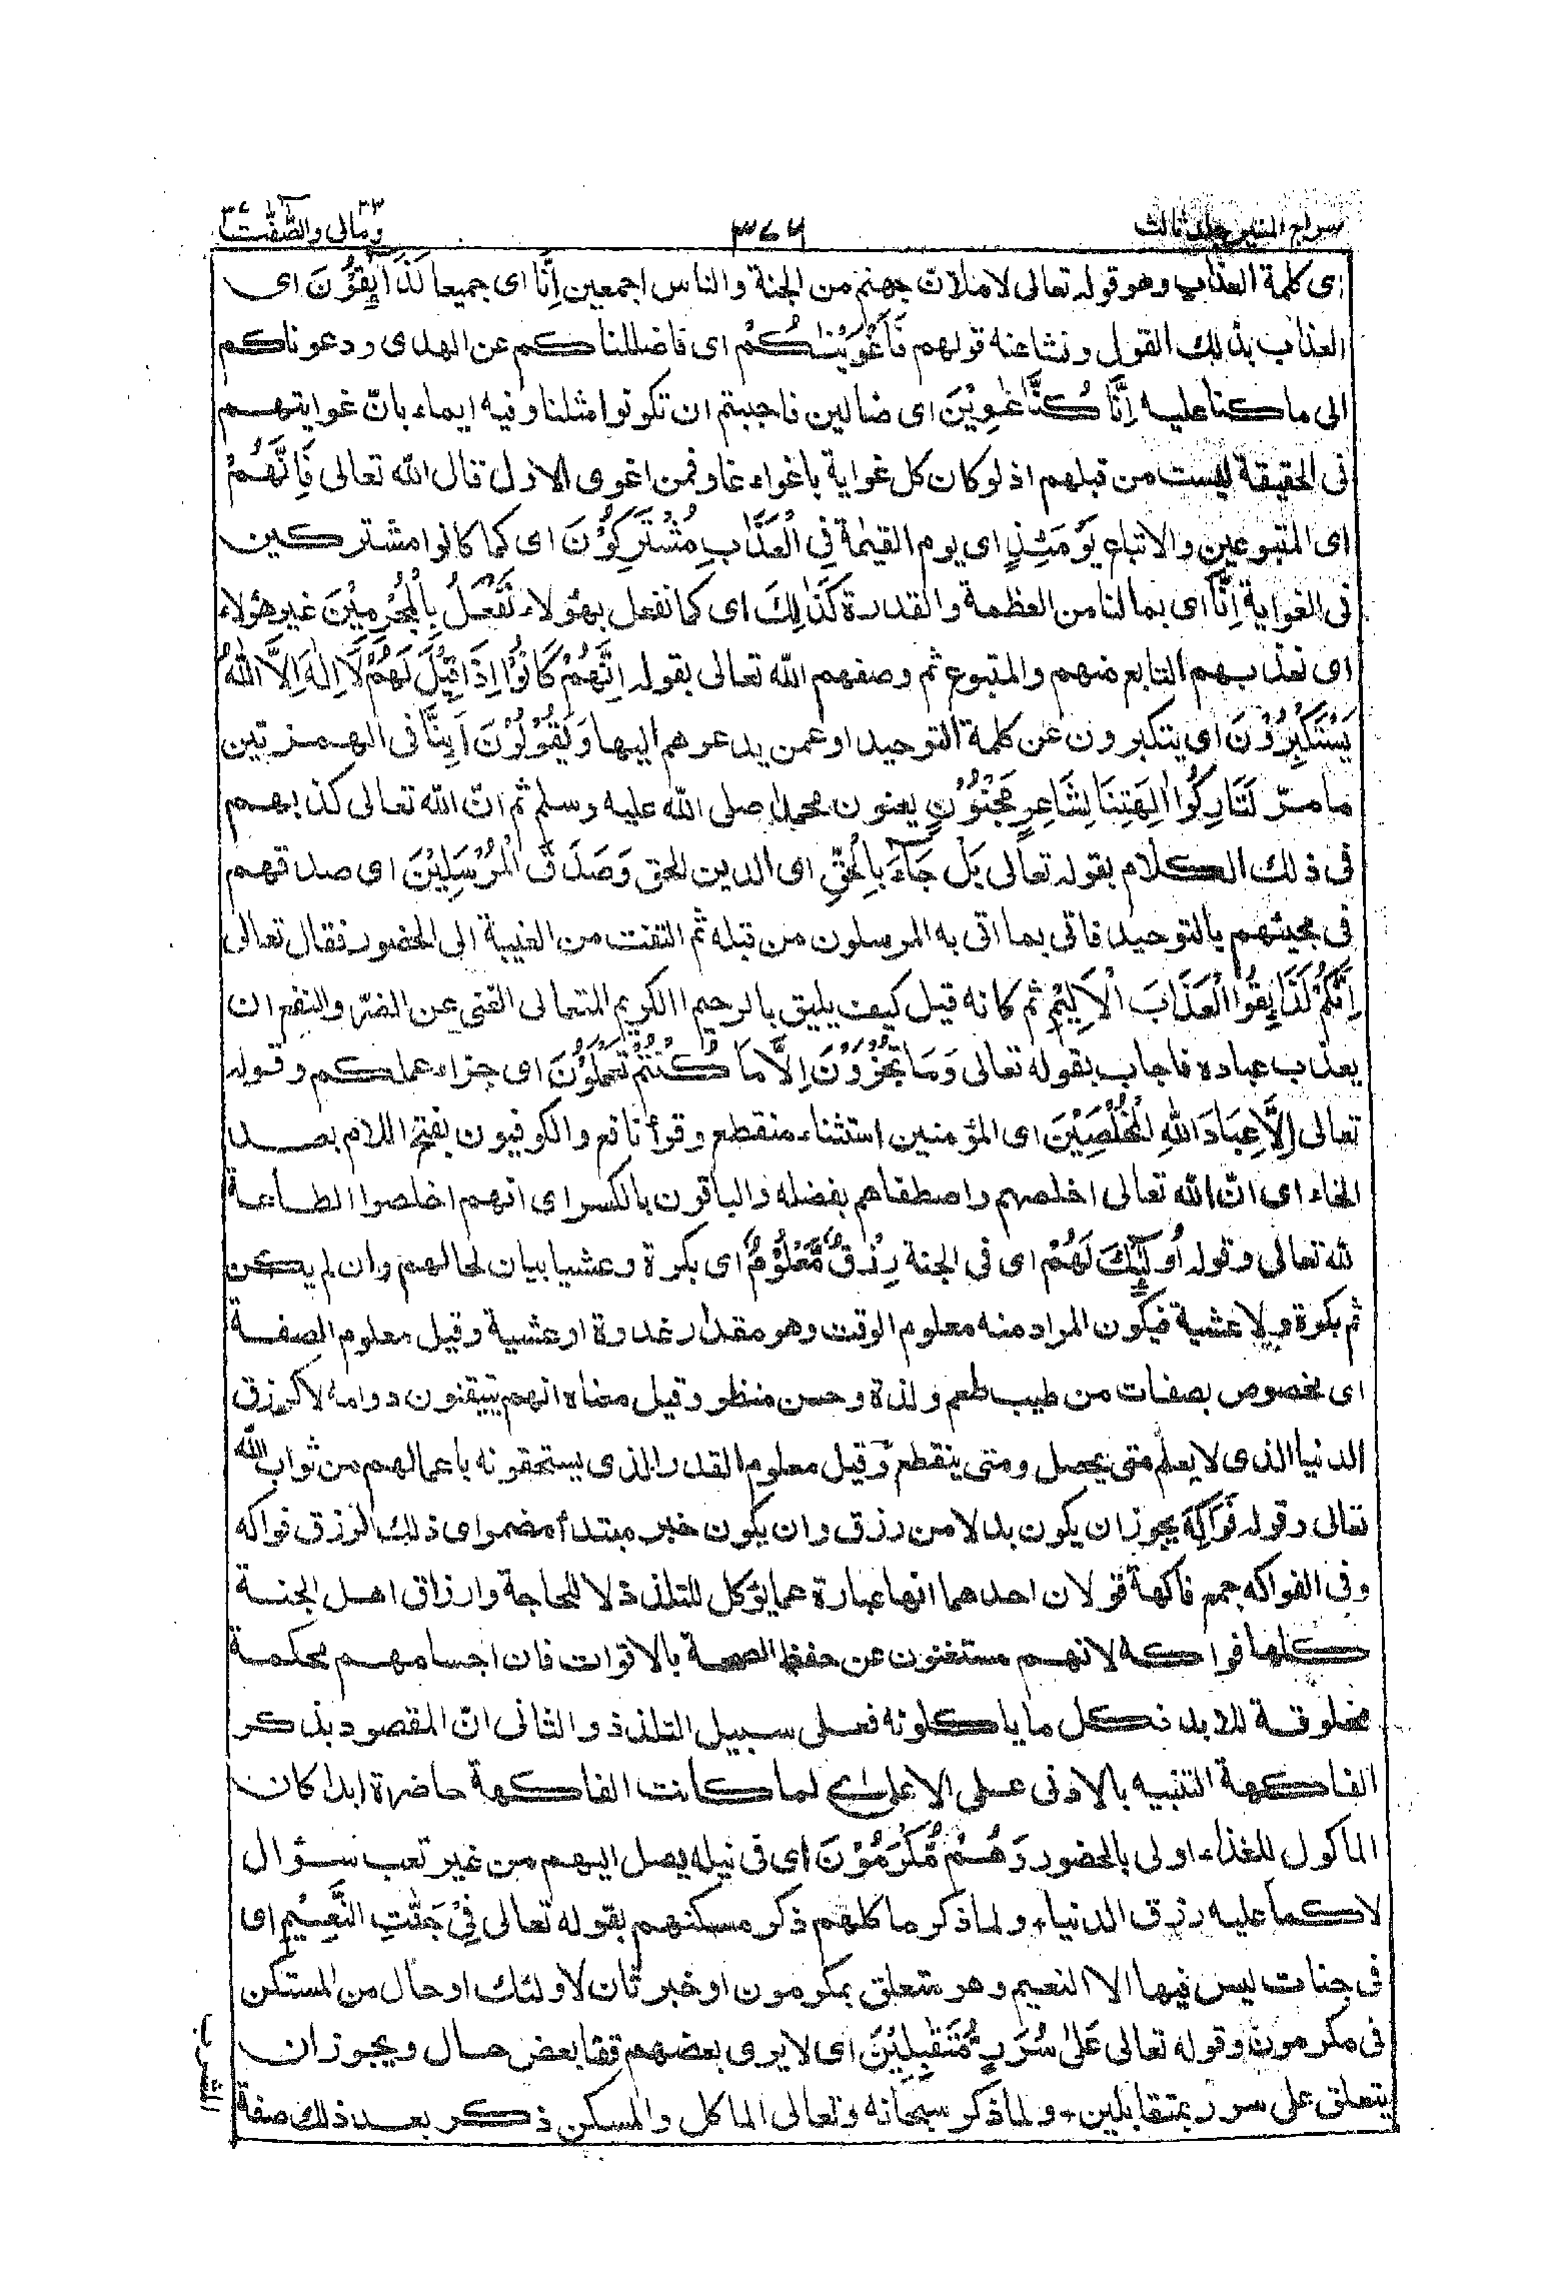 سراج المنير جلد ثالث
٣٧٦
ومالى ٢٣ والصّٰفّٰت ٣٧
اى كلمة العذاب وهو قوله تعالى لاملأنّ جهنم من الجنة والناس اجمعين اِنَّا اى جميعا لَذَآئِقُوْنَ اى
العذاب بذلك القول ونشاعنه قولهم فَاَغْوَيْنٰكُمْ اى فاضللناكم عن الهدى ودعوناكم
الى ما كنا عليه اِنَّا كُنَّا غٰوِيْنَ اى ضالين فاحببتم ان تكونوا مثلنا وفيه ايماء بانّ غوايتهم
فى الحقيقة ليست من قبلهم اذ لو كان كل غواية باغواء غاو فمن اغوى الاول قال الله تعالى فَاِنَّهُمْ
اى المتبوعين والاتباع يَوْمَئِذٍ اى يوم القيٰمة فِى الْعَذَابِ مُشْتَرِكُوْنَ اى كما كانوا مشتركين
فى الغواية اِنَّا اى بما لنا من العظمة والقدرة كَذٰلِكَ اى كما نفعل بهؤلاء نَفْعَلُ بِالْمُجْرِمِيْنَ غير هؤلاء
اى نعذبهم التابع منهم والمتبوع ثم وصفهم الله تعالى بقوله اِنَّهُمْ كَانُوْا اِذَا قِيْلَ لَهُمْ لَا اِلٰهَ اِلَّا اللّٰهُ
يَسْتَكْبِرُوْنَ اى يتكبرون عن كلمة التوحيد او عمن يدعوهم اليها وَيَقُوْلُوْنَ اَئِنَّا فى الهمزتين
ما مرّ لَتَارِكُوْا اٰلِهَتِنَا لِشَاعِرٍ مَّجْنُوْنٍ يعنون محمدا صلى الله عليه وسلم ثم انّ الله تعالى كذبهم
فى ذلك الكلام بقوله تعالى بَلْ جَآءَ بِالْحَقِّ اى الدين الحق وَصَدَّقَ الْمُرْسَلِيْنَ اى صدقهم
فى مجيئهم بالتوحيد فاتى بما اتى به المرسلون من قبله ثم التفت من الغيبة الى الحضور فقال تعالى
اِنَّكُمْ لَذَآئِقُوا الْعَذَابَ الْاَلِيْمِ ثم كانه قيل كيف يليق بالرحيم الكريم المتعالى الغنى عن الضرّ والنفع ان
يعذب عباده فاجاب بقوله تعالى وَمَا تُجْزَوْنَ اِلَّا مَا كُنْتُمْ تَعْمَلُوْنَ اى جزاء عملكم وقوله
تعالى اِلَّا عِبَادَ اللّٰهِ الْمُخْلَصِيْنَ اى المؤمنين استثناء منقطع وقرأ نافع والكوفيون بفتح اللام بعد
الخاء اى انّ الله تعالى اخلصهم واصطفاهم بفضله والباقون بالكسر اى انهم اخلصوا الطاعة
لله تعالى وقوله اُولٰٓئِكَ لَهُمْ اى فى الجنة رِزْقٌ مَّعْلُوْمٌ اى بكرة وعشيا بيان لحالهم وان لم يكن
ثم بكرة ولا عشية فيكون المراد منه معلوم الوقت وهو مقدار غدوة او عشية وقيل معلوم الصفة
اى مخصوص بصفات من طيب طعم ولذة وحسن منظر وقيل معناه انهم يتيقنون دوامه لا كرزق
الدنيا الذى لا يعلم متى يحصل ومتى ينقطع وقيل معلوم القدر الذى يستحقونه باعمالهم من ثواب الله
تعالى وقوله فَوَاكِهُ يجوز ان يكون بدلا من رزق وان يكون خبر مبتدأ مضمر اى ذلك الرزق فواكه
وفى الفواكه جمع فاكهة قولان احدهما انها عبارة عما يؤكل للتلذذ لا للحاجة وارزاق اهل الجنة
كلها فواكه لانهم مستغنون عن حفظ الصحة بالاقوات فان اجسامهم محكمة
مخلوقة للابد فكل ما ياكلونه فعلى سبيل التلذذ والثانى انّ المقصود بذكر
الفاكهة التنبيه بالادنى على الاعلى اى لما كانت الفاكهة حاضرة ابدا كان
الماكول للغذاء اولى بالحضور وَهُمْ مُّكْرَمُوْنَ اى فى نيله يصل اليهم من غير تعب سؤال
لا كما عليه رزق الدنيا، ولما ذكر ماكلهم ذكر مسكنهم بقوله تعالى فِىْ جَنّٰتِ النَّعِيْمِ اى
فى جنات ليس فيها الا النعيم وهو متعلق بمكرمون او خبر ثان لاولئك او حال من المستكن
فى مكرمون وقوله تعالى عَلٰى سُرُرٍ مُّتَقٰبِلِيْنَ اى لا يرى بعضهم قفا بعض حال ويجوز ان
يتعلق على سرر بمتقابلين، ولما ذكر سبحانه وتعالى الماكل والمسكن ذكر بعد ذلك صفة